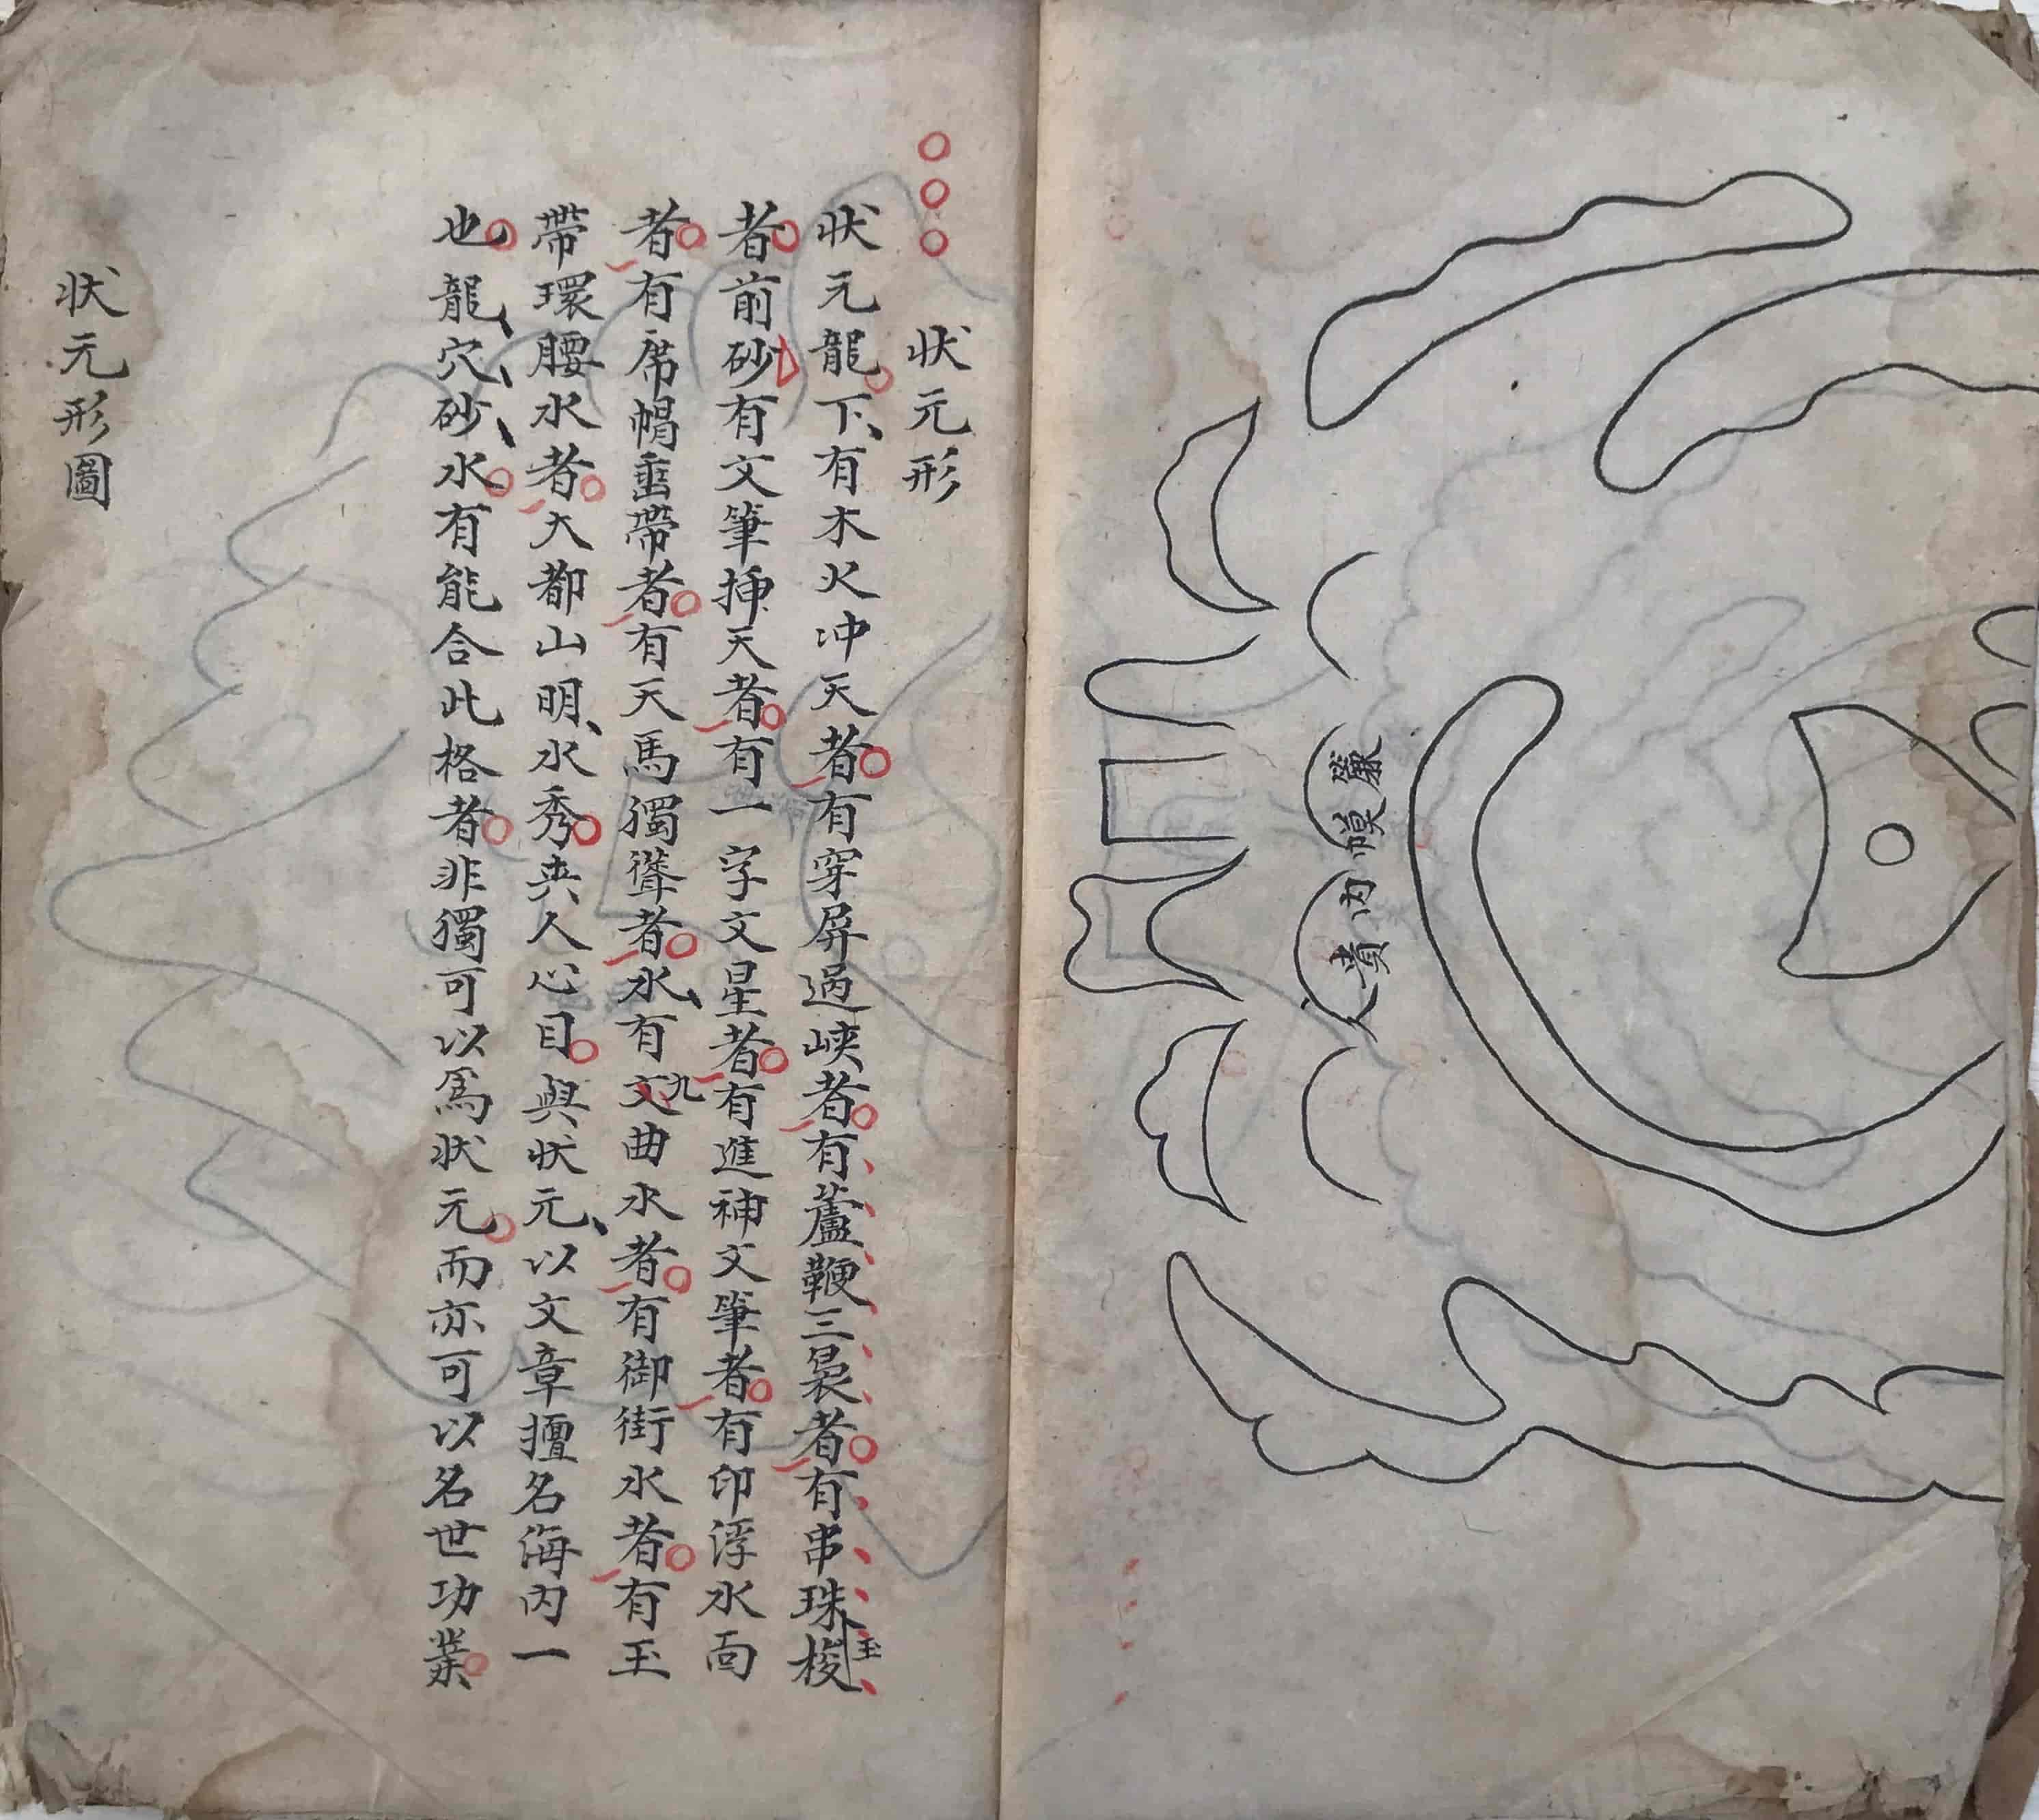 簾幕內貴人
狀元形
狀元龍下有木火冲天者有穿屏過峽者有蘆鞭三裊者有串珠玉梭
者前砂有文筆揷天者有一字文星者有進神文筆者有印浮水面
者有席帽垂帶者有天馬獨聳者水有文九曲水者有御街水者有玉
帶環腰水者大都山明水秀爽人心目與狀元以文章擅名海內一
也龍穴砂水有能合此格者非獨可以爲狀元而亦可以名世功業
狀元形圖